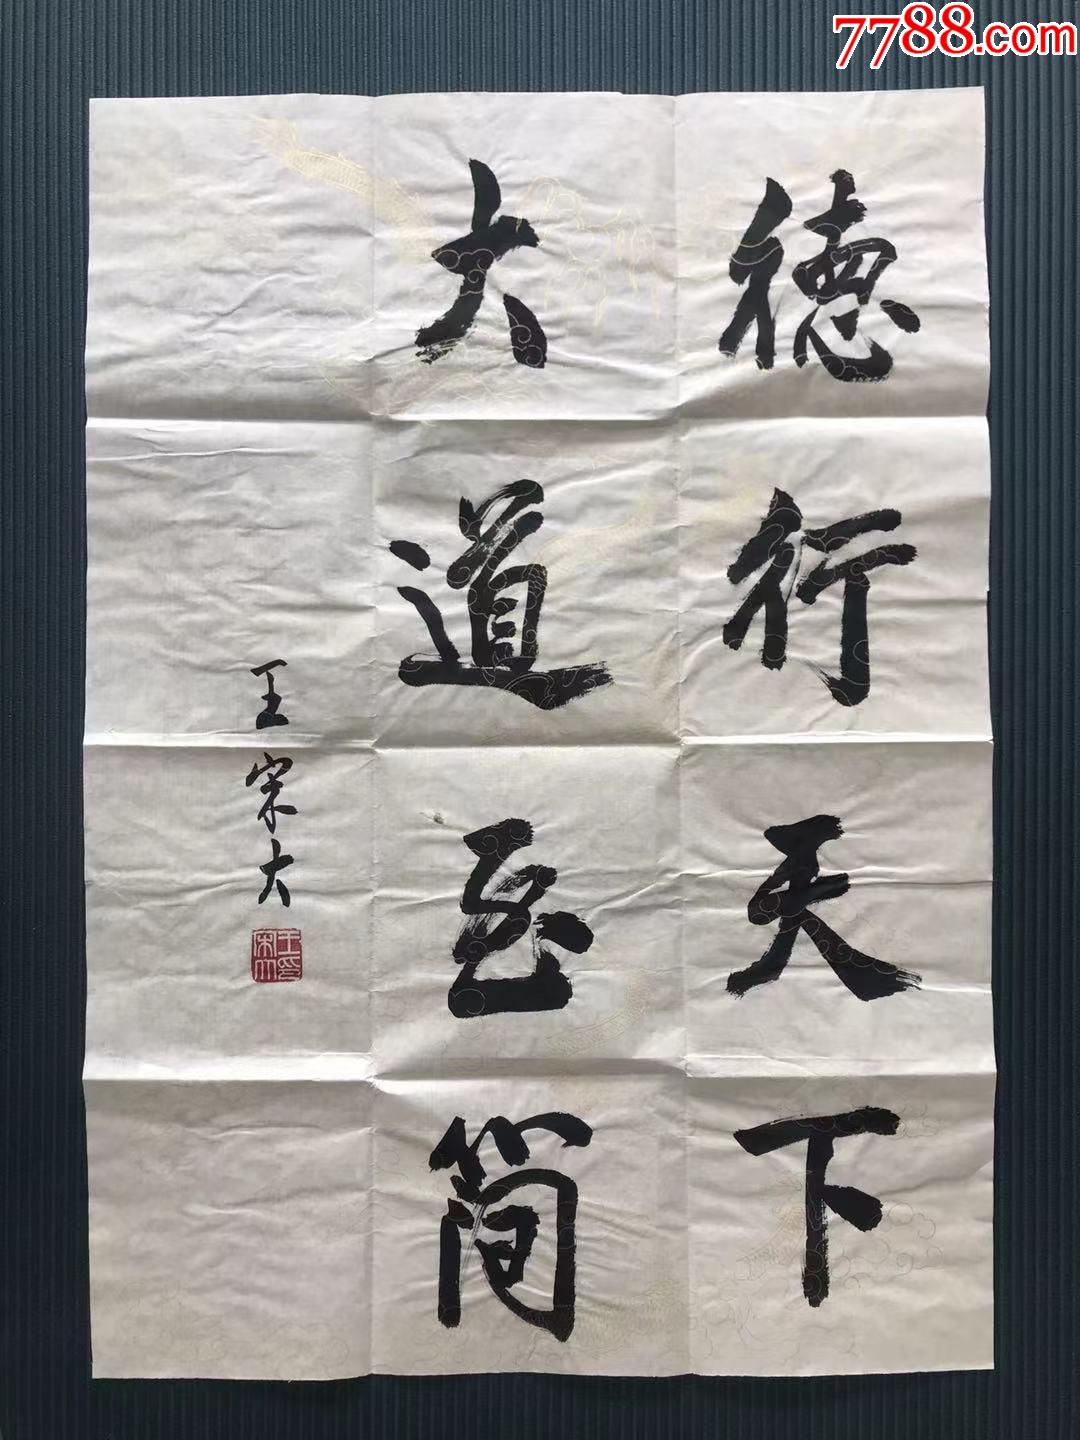 7788.com
德行天下
大道至简
王宋大
王宋大印